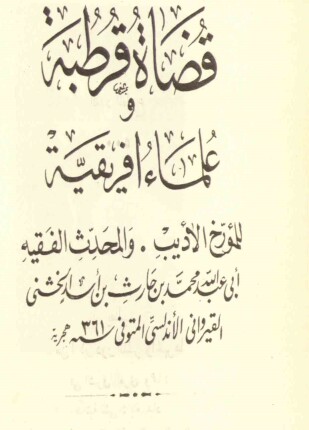 قُضَاةُ قُرْطُبَة
و
عُلَمَاءُ افْرِيقِيَّة
للمؤرخ الأديب . والمحدث الفقيه
أبي عبد الله محمد بن حارث بن أسد الخشني
القيرواني الأندلسي المتوفى سنة ٣٦١ هجرية